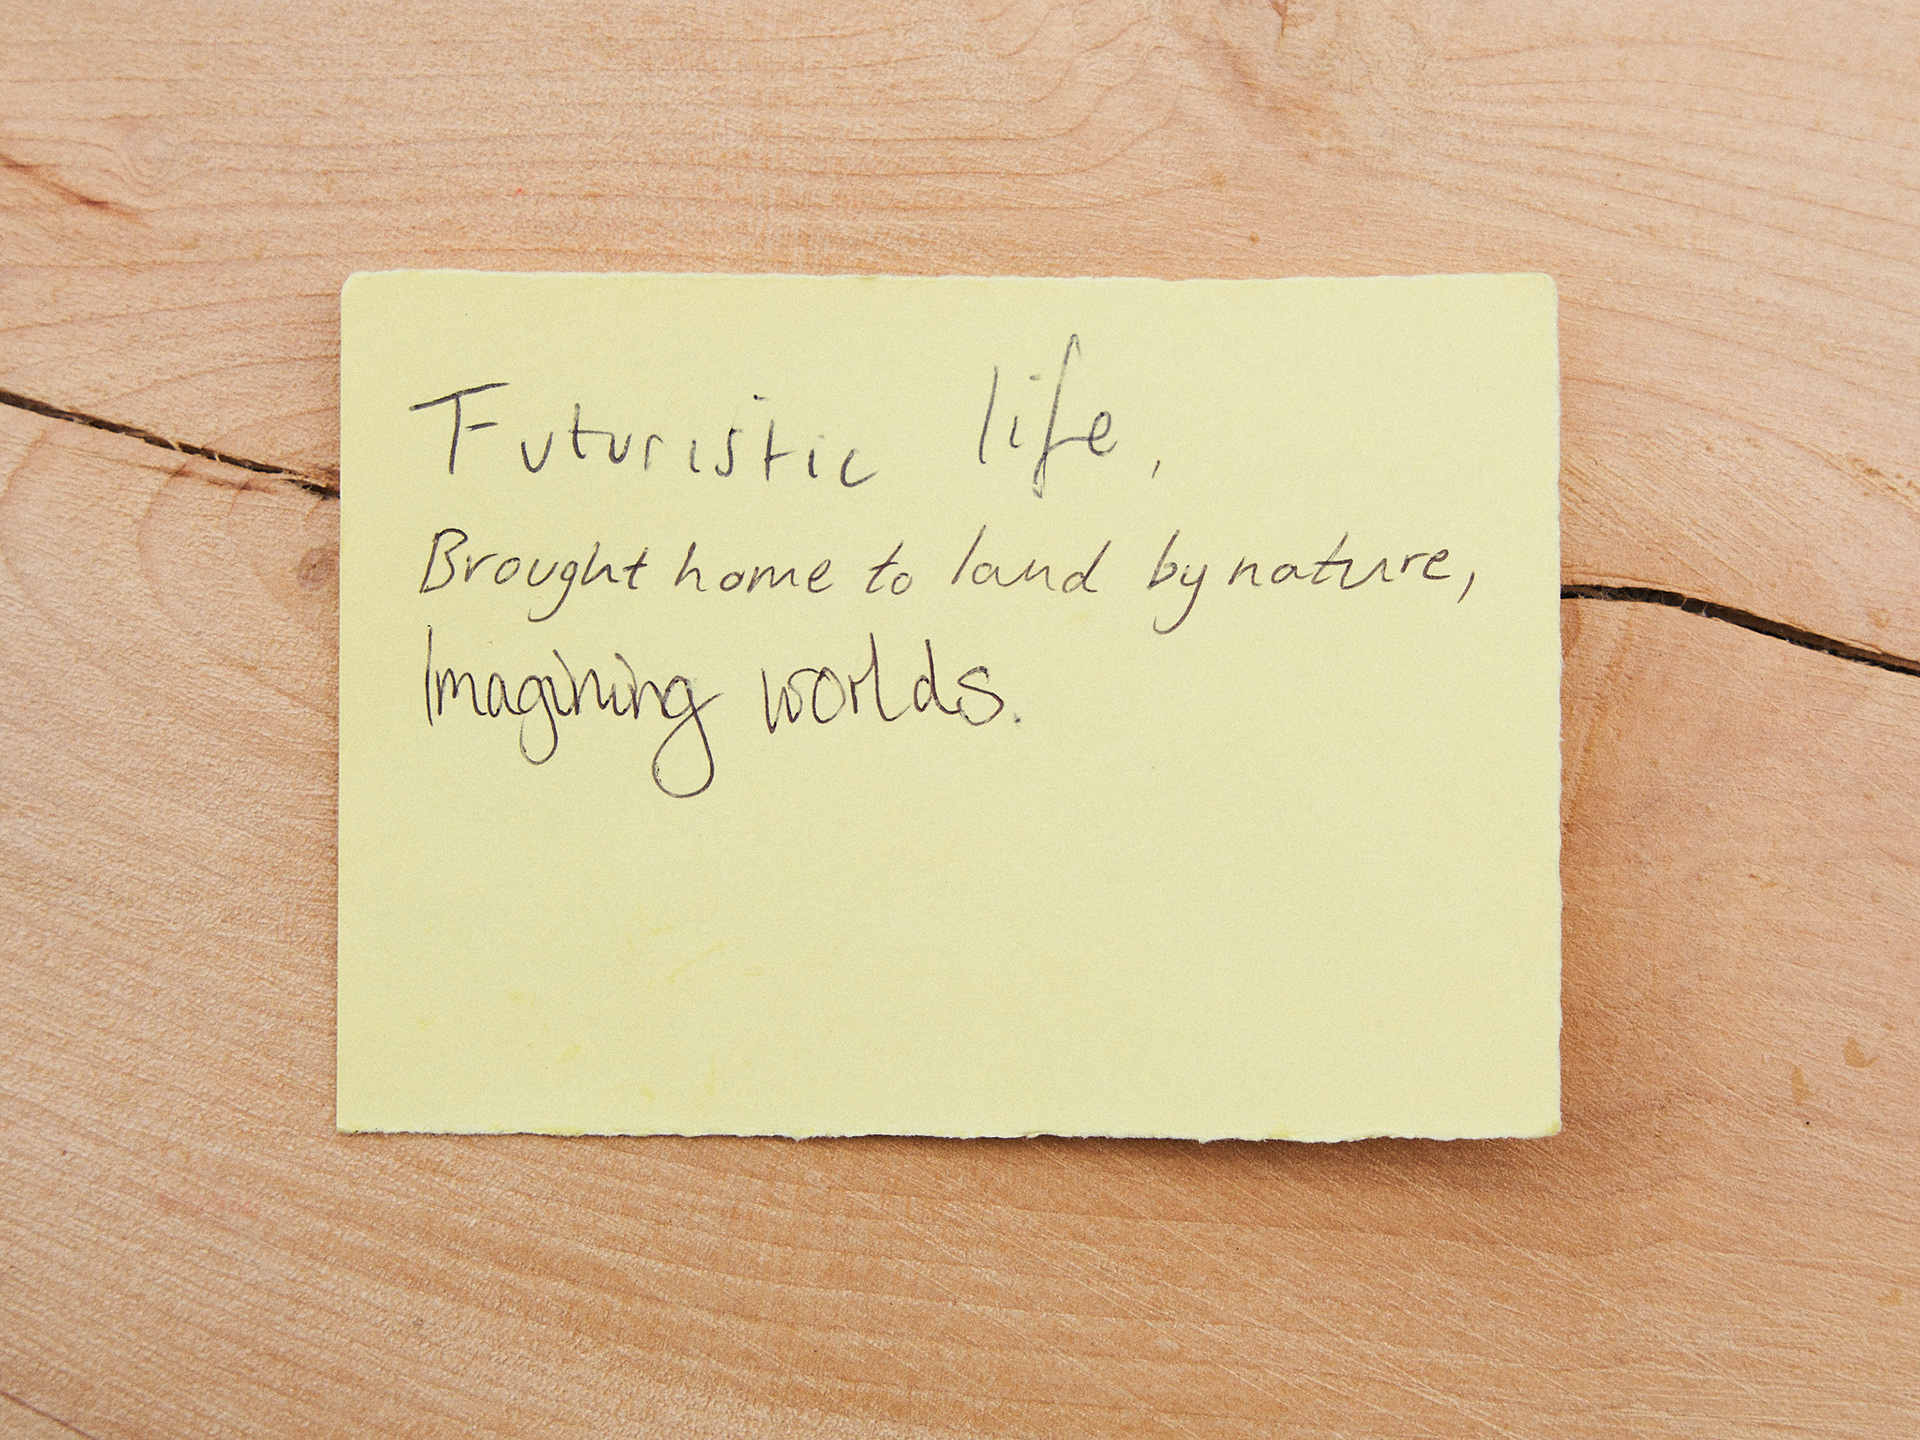 Futuristic life,
Brought home to land by nature,
Imagining worlds.